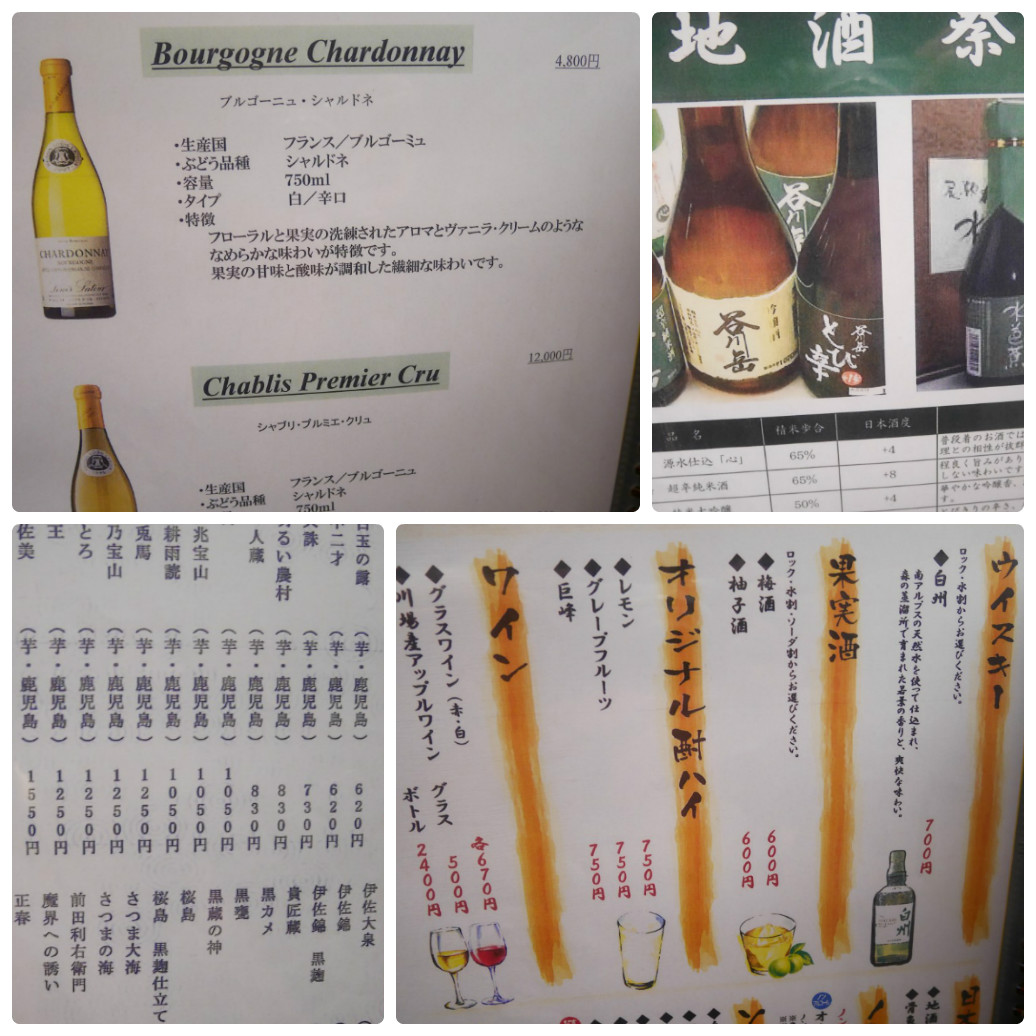 Bourgogne Chardonnay
4,800円
ブルゴーニュ・シャルドネ
・生産国 フランス／ブルゴーミュ
・ぶどう品種 シャルドネ
・容量 750ml
・タイプ 白／辛口
・特徴
フローラルと果実の洗練されたアロマとヴァニラ・クリームのような
なめらかな味わいが特徴です。
果実の甘味と酸味が調和した繊細な味わいです。
CHARDONNAY
Chablis Premier Cru
12,000円
シャブリ・プルミエ・クリュ
・生産国 フランス／ブルゴーニュ
・ぶどう品種 シャルドネ
・容量 750ml
地酒祭
谷川岳
谷川岳
谷川岳
とび辛
水
水芭蕉
品名 精米歩合 日本酒度
源水仕込「心」 65% +4
超辛純米酒 65% +8
50% +4
普段着のお酒では
理との相性が抜群
程良く旨みがあり
しない味わいです
華やかな吟醸香、
す。
玉の露 （芋・鹿児島） 620円
不二才 （芋・鹿児島） 620円
誅 （芋・鹿児島） 730円
るい農村 （芋・鹿児島） 830円
人蔵 （芋・鹿児島） 830円
（芋・鹿児島） 1050円
兆宝山 （芋・鹿児島） 1050円
耕雨読 （芋・鹿児島） 1050円
兎馬 （芋・鹿児島） 1250円
乃宝山 （芋・鹿児島） 1250円
とろ （芋・鹿児島） 1250円
王 （芋・鹿児島） 1250円
佐美 （芋・鹿児島） 1550円
伊佐大泉
伊佐錦
伊佐錦 黒麹
貴匠蔵
黒カメ
黒甕
黒蔵の神
桜島
桜島 黒麹仕立て
さつま大海
さつまの海
前田利右衛門
魔界への誘い
正春
ウイスキー
ロック・水割からお選びください。
◆白州 700円
南アルプスの天然水を使って仕込まれ、
森の蒸溜所で育まれた若葉の香りと、爽快な味わい。
白州
果実酒
ロック・水割・ソーダ割からお選びください。
◆梅酒 600円
◆柚子酒 600円
オリジナル酎ハイ
◆レモン 750円
◆グレープフルーツ 750円
◆巨峰 750円
ワイン
◆グラスワイン（赤・白） グラス 各670円
500円
◆川場産アップルワイン ボトル 2400円
日本
◆地酒